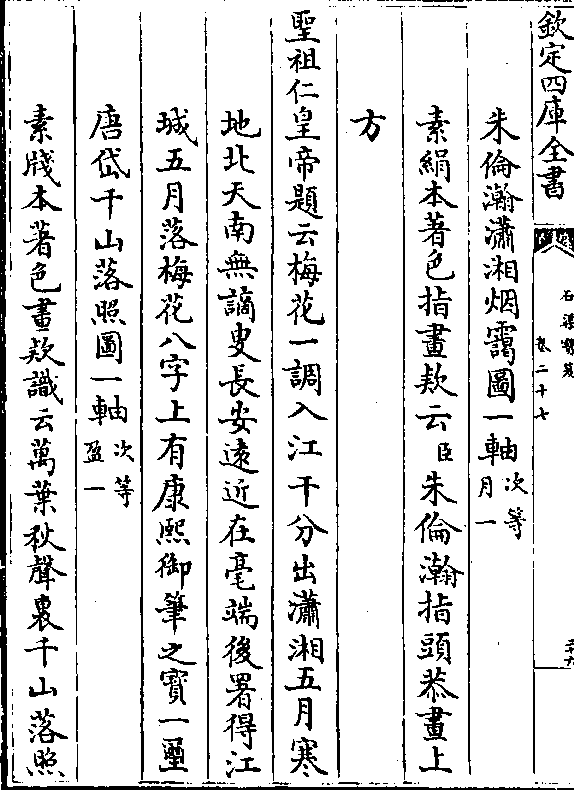 欽定四庫全書
石渠寶笈
卷二十七
朱倫瀚瀟湘烟靄圖一軸
次等
月一
素絹本著色指畫欵云臣朱倫瀚指頭恭畫上
方
聖祖仁皇帝題云梅花一調入江干分出瀟湘五月寒
地北天南無謫叟長安遠近在毫端後署得江
城五月落梅花八字上有康熙御筆之寳一璽
唐岱千山落照圖一軸
次等
盈一
素牋本著色畫欵識云萬葉秋聲裏千山落照